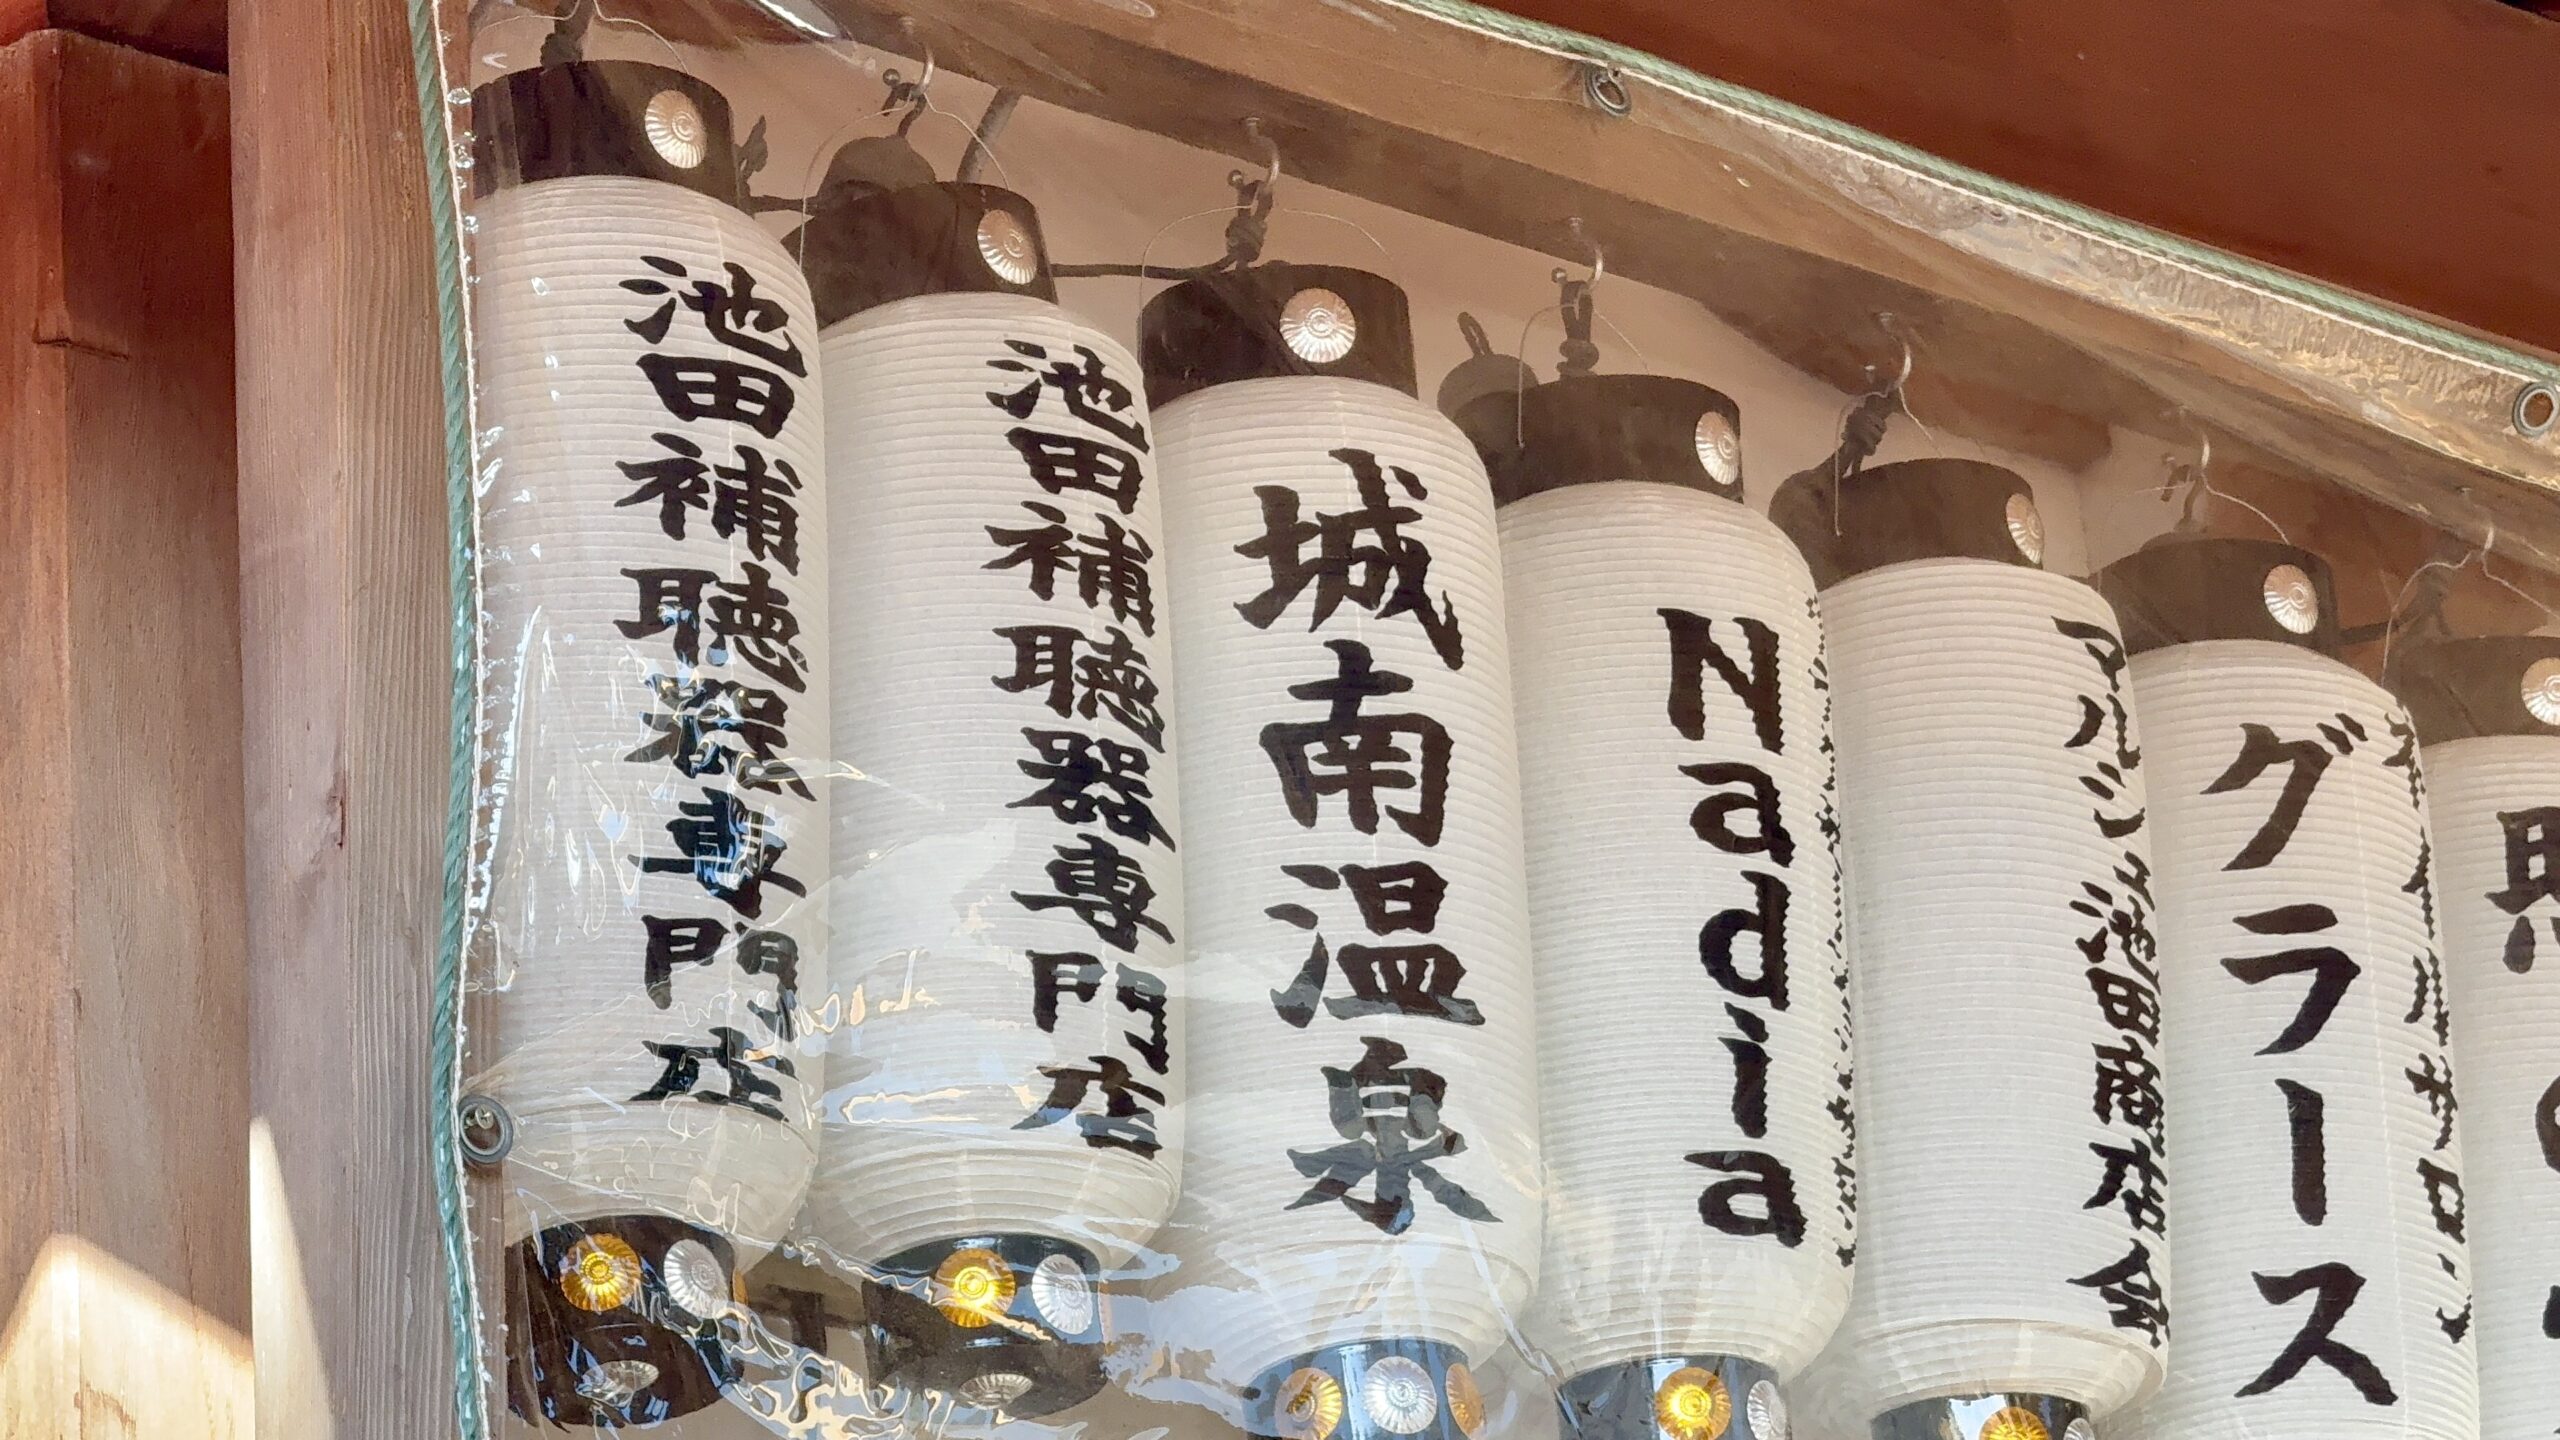 池田補聴器専門店
池田補聴器専門店
城南温泉
Nadia
マルシン池田商店会
グラース